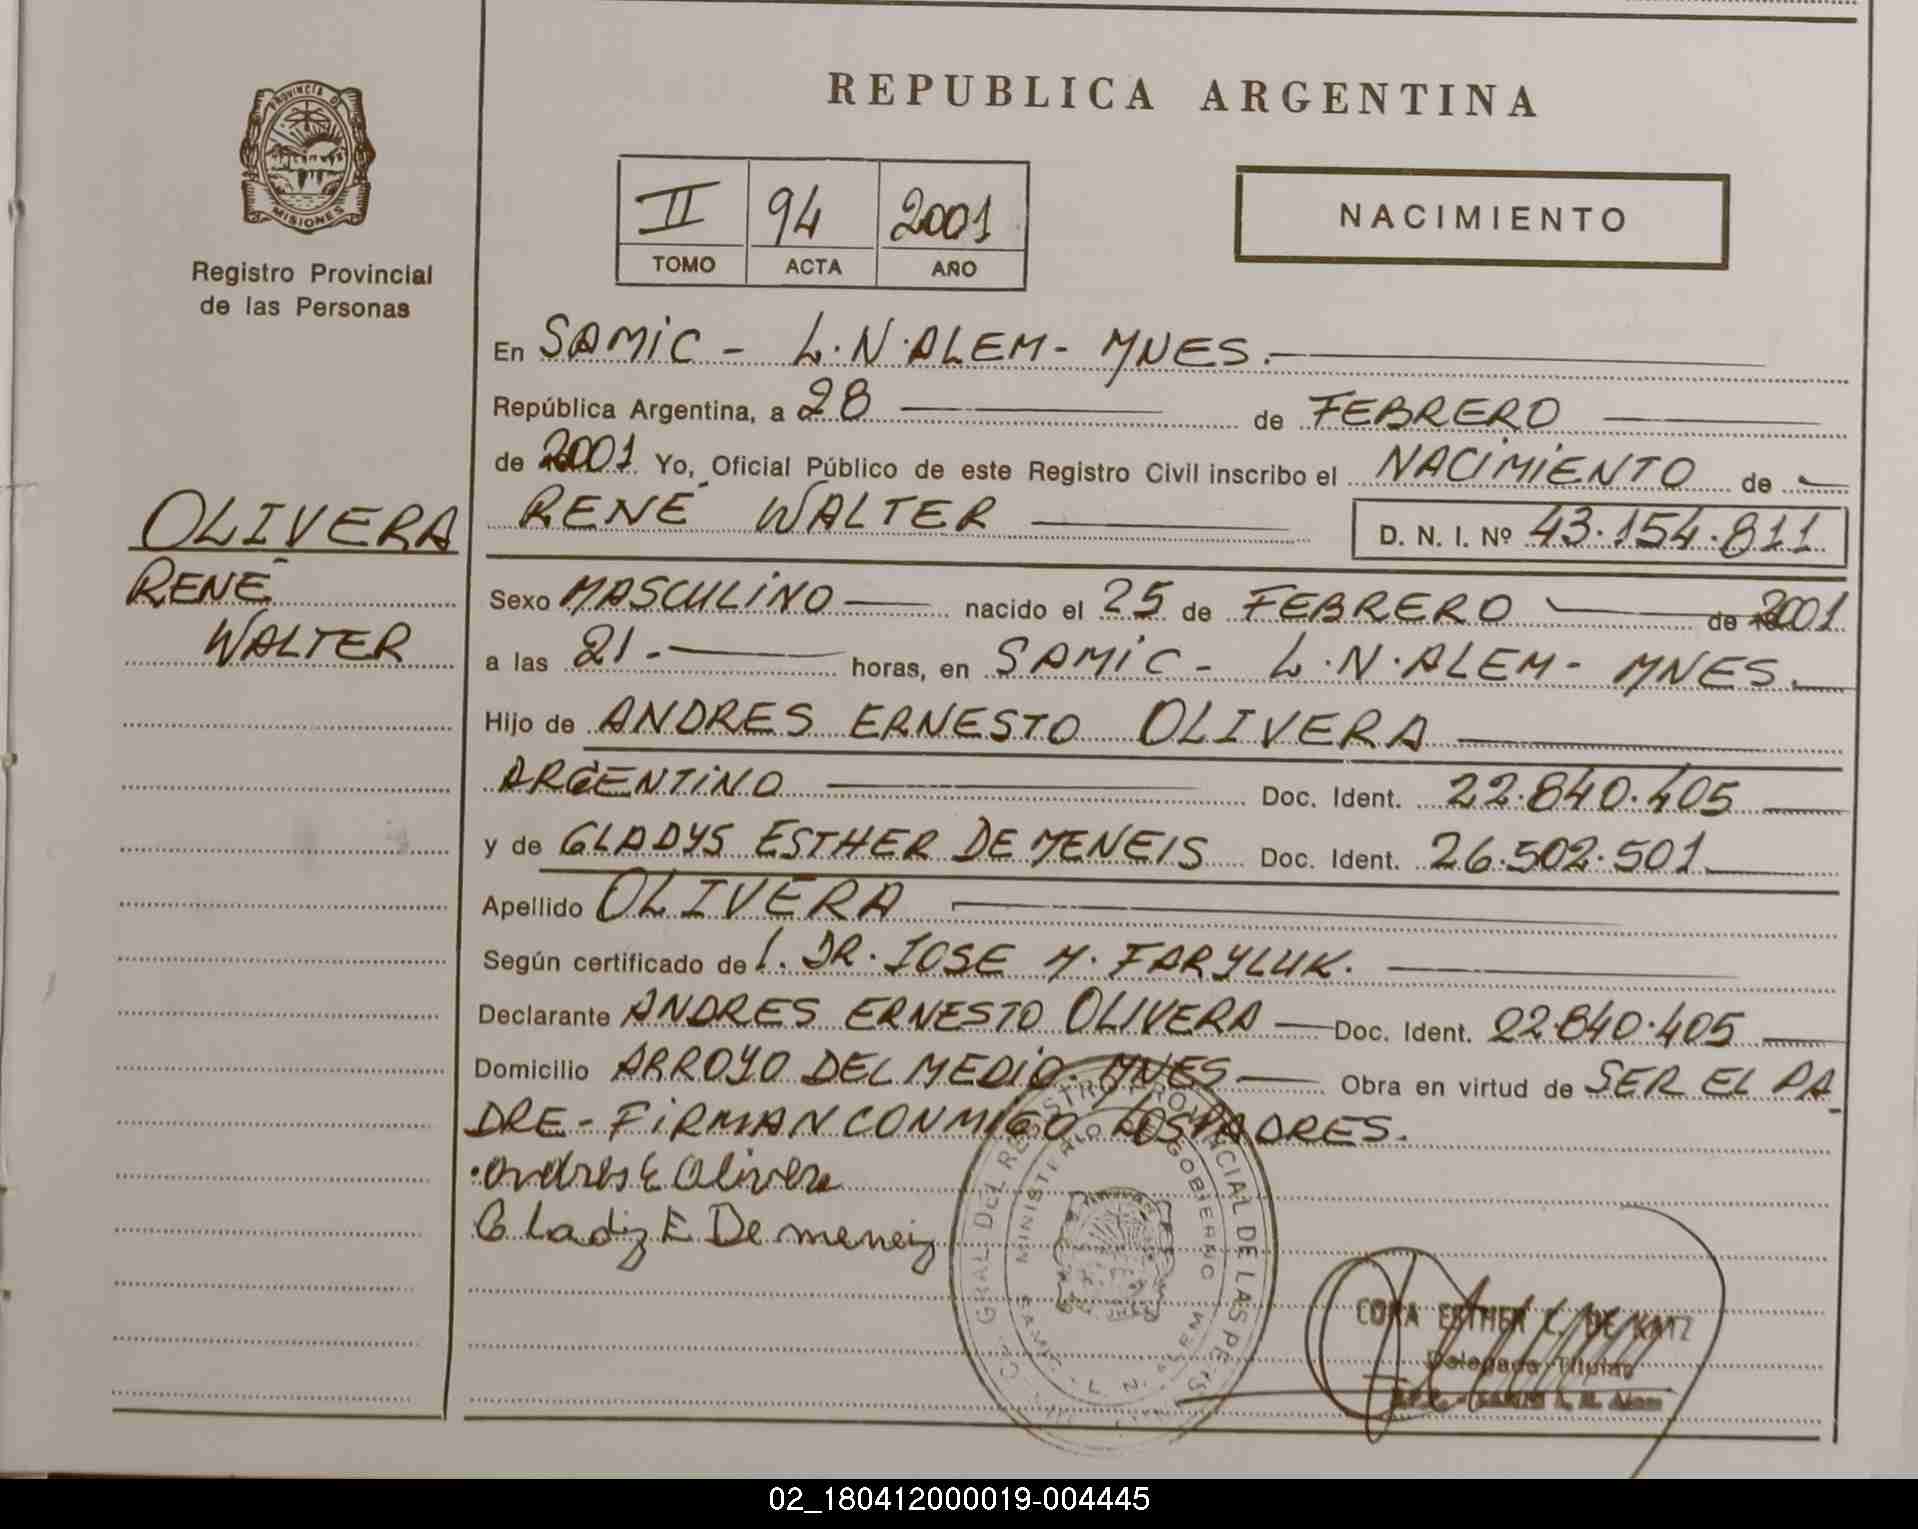 PROVINCIA DE
MISIONES
Registro Provincial
de las Personas
OLIVERA
RENÉ
WALTER
REPUBLICA ARGENTINA
II 94 2001
TOMO ACTA AÑO
NACIMIENTO
En SAMIC - L.N.ALEM - MNES.
República Argentina, a 28 de FEBRERO
de 2001 Yo, Oficial Público de este Registro Civil inscribo el NACIMIENTO de
RENÉ WALTER D. N. I. Nº 43.154.811
Sexo MASCULINO nacido el 25 de FEBRERO de 2001
a las 21.- horas, en SAMIC - L.N.ALEM - MNES.
Hijo de ANDRES ERNESTO OLIVERA
ARGENTINO Doc. Ident. 22.840.405
y de GLADYS ESTHER DE MENEIS Doc. Ident. 26.502.501
Apellido OLIVERA
Según certificado de l. DR. JOSE M. FARYLUK.
Declarante ANDRES ERNESTO OLIVERA Doc. Ident. 22.840.405
Domicilio ARROYO DEL MEDIO. MNES Obra en virtud de SER EL PA-
DRE - FIRMAN CONMIGO LOS PADRES.
Andres E Olivera
Gladiz E De meneiz
GRAL. DEL REGISTRO PROVINCIAL DE LAS PE
MINISTERIO DE GOBIERNO
SAMIC L. N. ALEM
CORA ESTHER C. DE KATZ
Delegada Titular
L. N. Alem
02_180412000019-004445